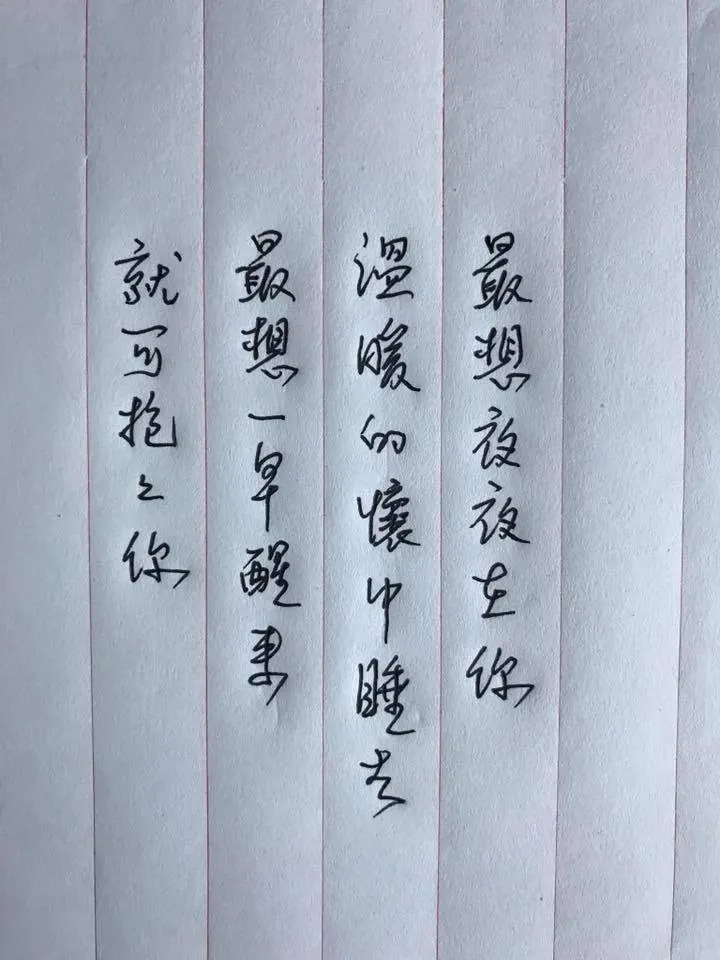 最想夜夜在你
溫暖的懷中睡去
最想一早醒來
就可抱之你